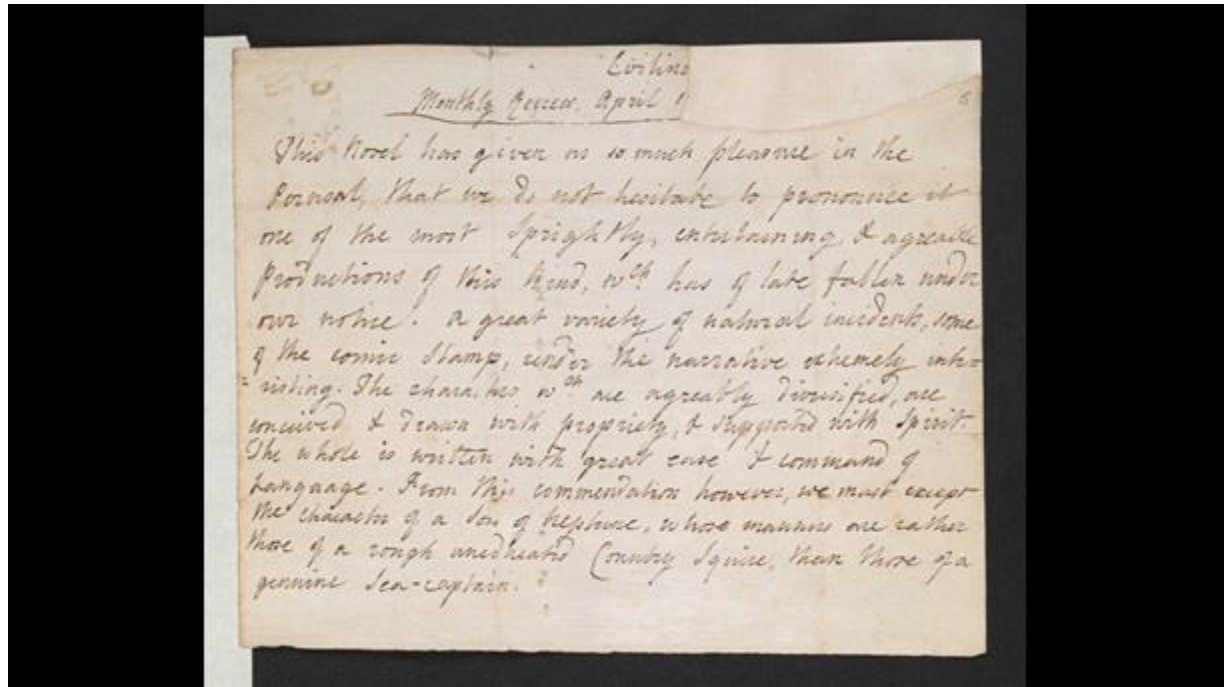 Evilina
Monthly Review, April 1
This Novel has given us so much pleasure in the
Perusal, that we do not hesitate to pronounce it
one of the most Sprightly, entertaining, & agreable
Productions of this kind, wch has of late fallen under
our notice. A great variety of natural incidents, some
of the comic Stamp, render the narrative extremely inte-
=risting. The characters wch are agreably diversified, are
conceived & drawn with propriety, & supported with Spirit.
The whole is written with great ease & command of
Language. From this commendation however, we must except
the character of a Son of Neptune, whose manners are rather
those of a rough uneducated Country Squire, than those of a
genuine Sea-captain.